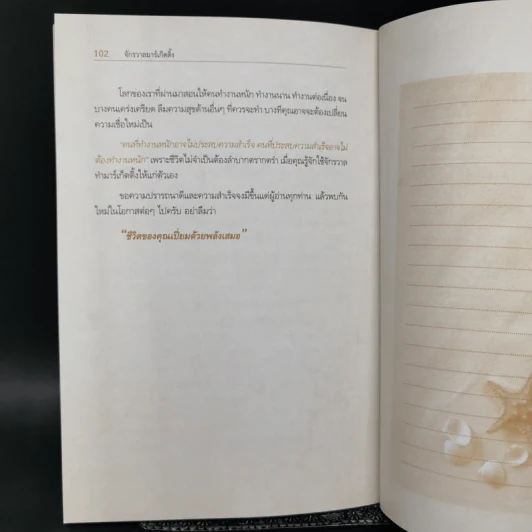 102 จักรวาลมาร์เก็ตติ้ง
โลกของเราที่ผ่านมาสอนให้คนทำงานหนัก ทำงานนาน ทำงานต่อเนื่อง จน
บางคนเคร่งเครียด ลืมความสุขด้านอื่นๆ ที่ควรจะทำ บางทีคุณอาจจะต้องเปลี่ยน
ความเชื่อใหม่เป็น
"คนที่ทำงานหนักอาจไม่ประสบความสำเร็จ คนที่ประสบความสำเร็จอาจไม่
ต้องทำงานหนัก" เพราะชีวิตไม่จำเป็นต้องลำบากตรากตรำ เมื่อคุณรู้จักใช้จักรวาล
ทำมาร์เก็ตติ้งให้แก่ตัวเอง
ขอความปรารถนาดีและความสำเร็จจงมีขึ้นแด่ผู้อ่านทุกท่าน แล้วพบกัน
ใหม่ในโอกาสต่อๆ ไปครับ อย่าลืมว่า
"ชีวิตของคุณเปี่ยมด้วยพลังเสมอ"